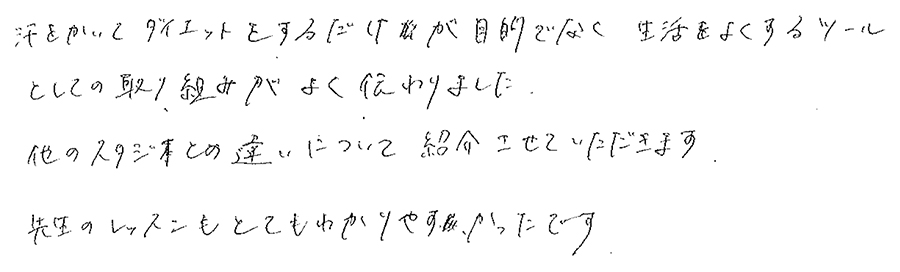 汗をかいてダイエットをするだけが目的でなく 生活をよくするツール
としての取り組みがよく伝わりました.
他のスタジオとの違いについて紹介させていただきます.
先生のレッスンもとてもわかりやすかったです.